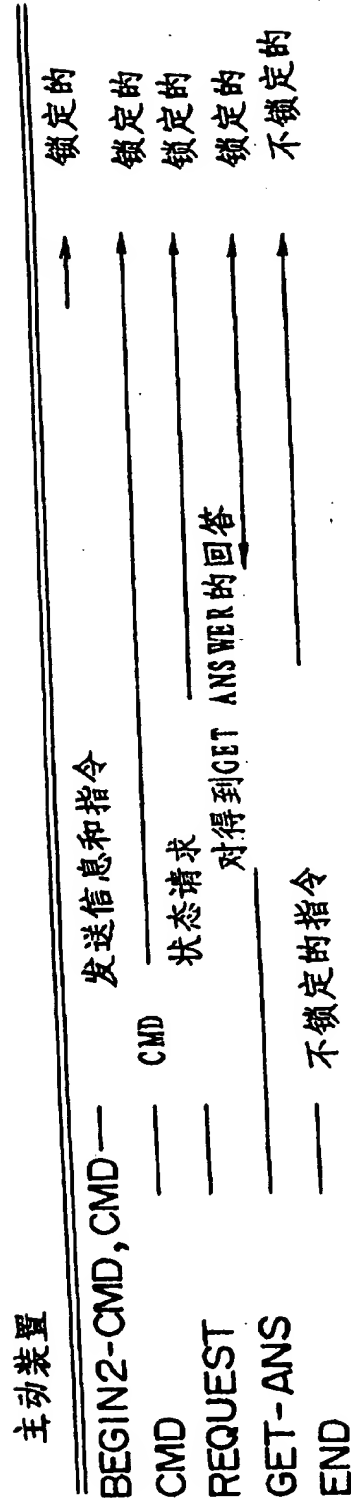 主动装置
BEGIN2-CMD, CMD 发送信息和指令 锁定的
CMD CMD 锁定的
REQUEST 状态请求 锁定的
GET-ANS 对得到GET ANSWER的回答 锁定的
END 不锁定的指令 不锁定的